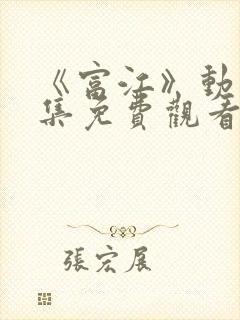 《富江》動
集免費觀看
張宏展